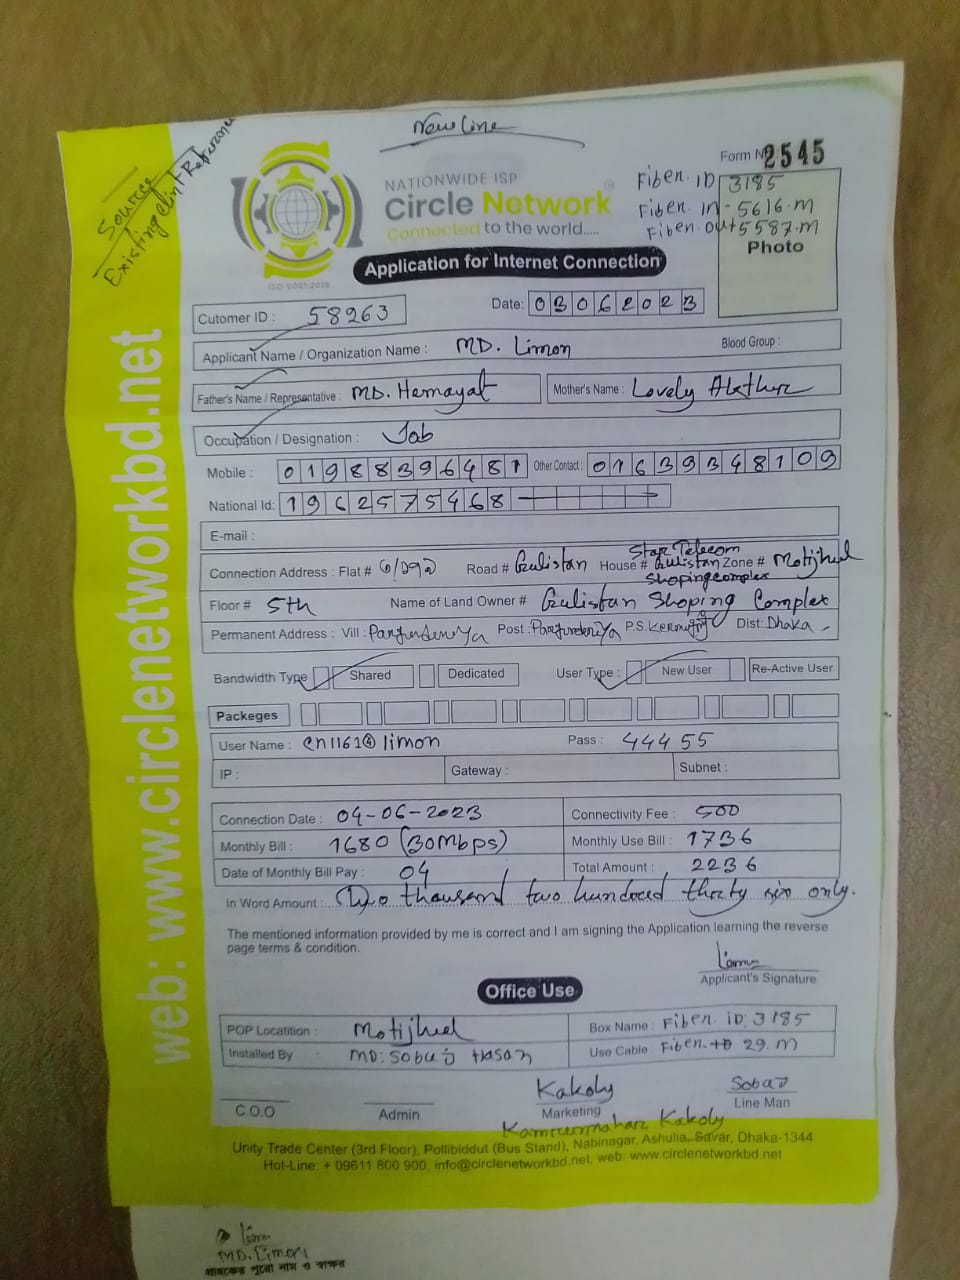 New Line
Source
Existing Clint Reference
Form No 2545
NATIONWIDE ISP
Circle Network
Connected to the world.....
ISO 9001:2015
Fiben ID 3185
Fiben. In - 5616.m
Fiben. out 5587.m
Photo
Application for Internet Connection
Cutomer ID : 58263
Date: 03062023
Applicant Name / Organization Name : MD. Limon
Blood Group :
Father's Name / Representative : MD. Hemayat
Mother's Name : Lovely Akther
Occupation / Designation : Job
Mobile : 01988396481 Other Contact : 01639348109
National Id: 1962575468
E-mail :
Connection Address : Flat # Road # Gulistan House # Star Telecom Gulistan Shoping complex Zone # Motijheel
Floor # 5th Name of Land Owner # Gulistan Shoping Complex
Permanent Address : Vill : Post : P.S. Dist: Dhaka
Bandwidth Type Shared Dedicated User Type : New User Re-Active User
Packeges
User Name : cn1161@limon Pass : 44455
IP : Gateway : Subnet :
Connection Date : 04-06-2023 Connectivity Fee : 500
Monthly Bill : 1680 (30Mbps) Monthly Use Bill : 1736
Date of Monthly Bill Pay : 04 Total Amount : 2236
In Word Amount : Two thousand two hundred thirty six only.
The mentioned information provided by me is correct and I am signing the Application learning the reverse
page terms & condition.
Limon
Applicant's Signature
Office Use
POP Locatition : Motijheel Box Name : Fiben. iD: 3185
Installed By MD: Sobuj Hasan Use Cable : Fiben. 29.m
Kakoly
C.O.O Admin Marketing Line Man
Kakoly
Unity Trade Center (3rd Floor), Pollibiddut (Bus Stand), Nabinagar, Ashulia, Savar, Dhaka-1344
Hot-Line: + 09611 800 900, info@circlenetworkbd.net, web: www.circlenetworkbd.net
web: www.circlenetworkbd.net
MD. Limon
গ্রাহকের পুরো নাম ও স্বাক্ষর